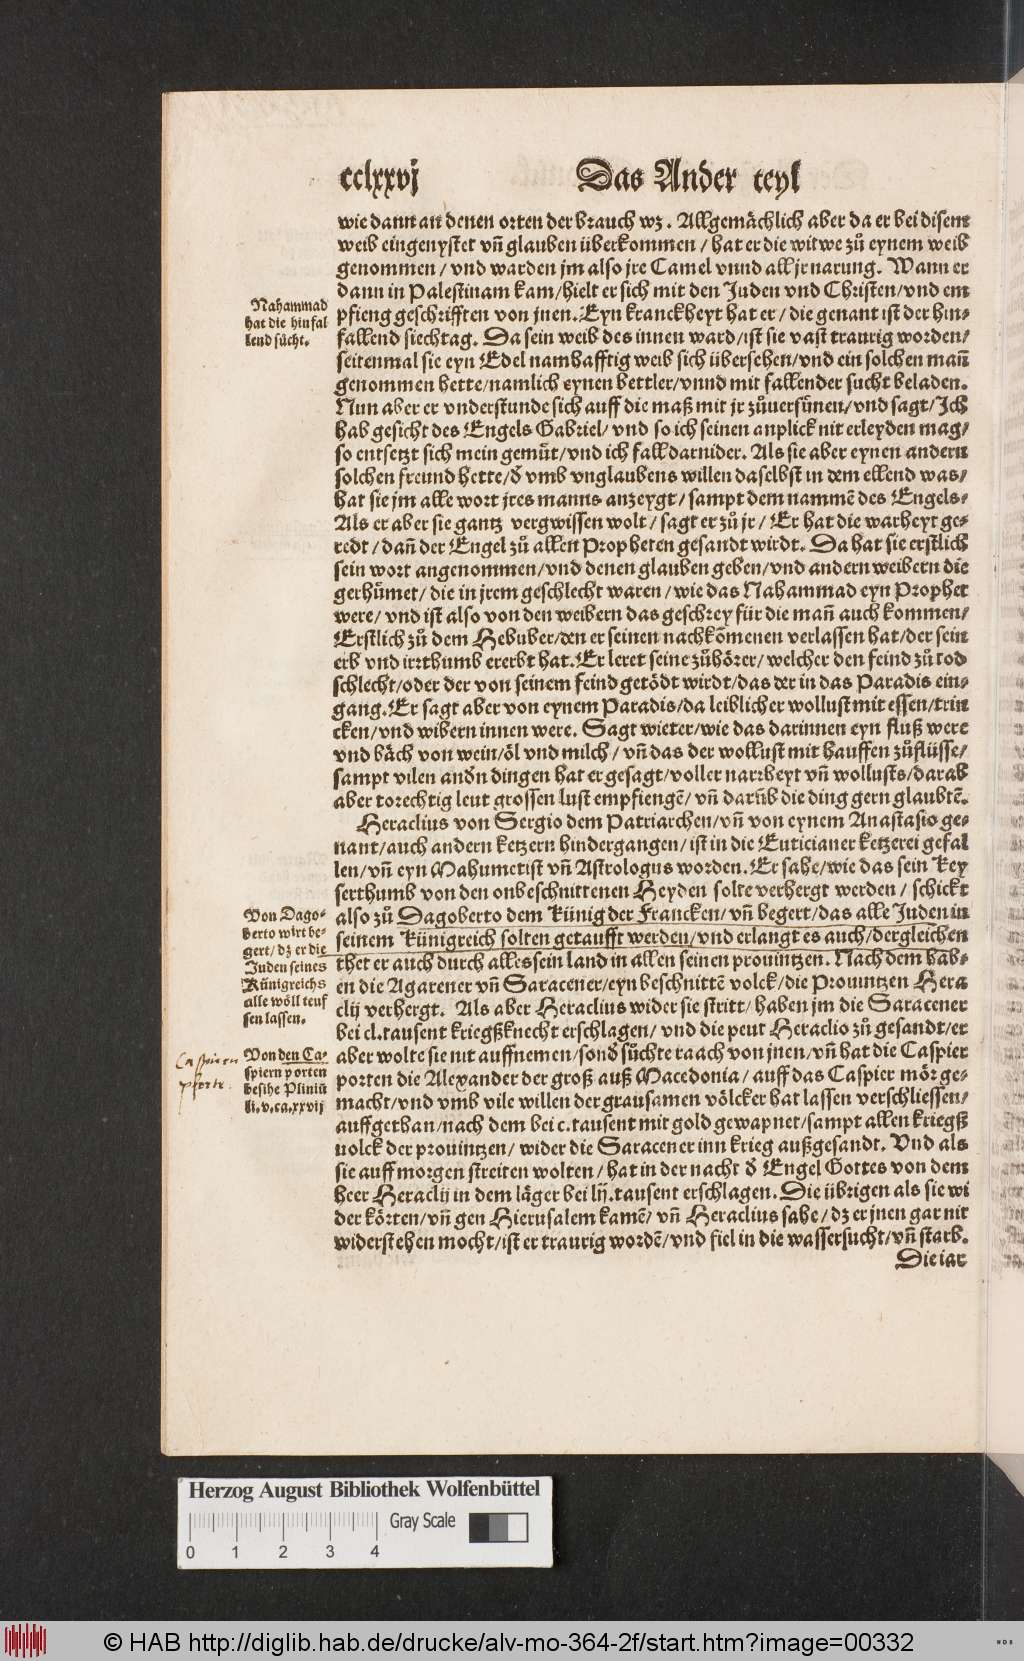 cclxxvj Das Ander teyl
wie dann an denen orten der brauch wz. Allgemächlich aber da er bei disem
weib eingenystet vñ glauben überkommen / hat er die witwe zů eynem weib
genommen / vnd warden jm also jre Camel vnnd all jr narung. Wann er
dann in Palestinam kam / hielt er sich mit den Juden vnd Christen / vnd em
pfieng geschrifften von jnen. Eyn kranckheyt hat er / die genant ist der hin-
fallend siechtag. Da sein weib des innen ward / ist sie vast traurig worden /
seitenmal sie eyn Edel namhafftig weib sich übersehen / vnd ein solchen mañ
genommen hette / namlich eynen bettler / vnnd mit fallender sucht beladen.
Nun aber er vnderstunde sich auff die maß mit jr zůuersünen / vnd sagt / Ich
hab gesicht des Engels Gabriel / vnd so ich seinen anplick nit erleyden mag /
so entsetzt sich mein gemüt / vnd ich fall darnider. Als sie aber eynen andern
solchen freund hette / ď vmb vnglaubens willen daselbst in dem ellend was /
hat sie jm alle wort jres manns anzeygt / sampt dem nammē des Engels.
Als er aber sie gantz vergwissen wolt / sagt er zů jr / Er hat die warheyt ge-
redt / dañ der Engel zů allen Propheten gesandt wirdt. Da hat sie erstlich
sein wort angenommen / vnd denen glauben geben / vnd andern weibern die
gerhümet / die in jrem geschlecht waren / wie das Nahammad eyn Prophet
were / vnd ist also von den weibern das geschrey für die mañ auch kommen /
Erstlich zů dem Hebuber / den er seinen nachkōmenen verlassen hat / der sein
erb vnd irrthumb ererbt hat. Er leret seine zůhörer / welcher den feind zů tod
schlecht / oder der von seinem feind getödt wirdt / das der in das Paradis ein-
gang. Er sagt aber von eynem Paradis / da leiblicher wollust mit essen / trin
cken / vnd wibern innen were. Sagt wieter / wie das darinnen eyn fluß were
vnd bäch von wein / öl vnd milch / vñ das der wollust mit hauffen zůflüsse /
sampt vilen anďn dingen hat er gesagt / voller narrheyt vñ wollusts / darab
aber torechtig leut grossen lust empfiengē / vñ darũb die ding gern glaubtē.
Heraclius von Sergio dem Patriarchen / vñ von eynem Anastasio ge-
nant / auch andern ketzern hindergangen / ist in die Euticianer ketzerei gefal
len / vñ eyn Mahumetist vñ Astrologus worden. Er sahe / wie das sein Key
serthumb von den onbeschnittenen Heyden solte verhergt werden / schickt
also zů Dagoberto dem Künig der Francken / vñ begert / das alle Juden in
seinem Künigreich solten getaufft werden / vnd erlangt es auch / dergleichen
thet er auch durch alles sein land in allen seinen prouintzen. Nach dem hab-
en die Agarener vñ Saracener / eyn beschnittē volck / die Prouintzen Hera
clij verhergt. Als aber Heraclius wider sie stritt / haben jm die Saracener
bei cl. tausent kriegßknecht erschlagen / vnd die peut Heraclio zů gesandt / er
aber wolte sie nit auffnemen / sonď sůchte raach von jnen / vñ hat die Caspier
porten die Alexander der groß auß Macedonia / auff das Caspier mör ge-
macht / vnd vmb vile willen der grausamen völcker hat lassen verschliessen /
auffgethan / nach dem bei c. tausent mit gold gewapnet / sampt allen kriegß
uolck der prouintzen / wider die Saracener inn krieg außgesandt. Vnd als
sie auff morgen streiten wolten / hat in der nacht ď Engel Gottes von dem
heer Heraclij in dem läger bei lij. tausent erschlagen. Die übrigen als sie wi
der körten / vñ gen Hierusalem kamē / vñ Heraclius sahe / dz er jnen gar nit
widerstehen mocht / ist er traurig wordē / vnd fiel in die wassersucht / vñ starb.
Die iar
Nahammad
hat die hinfal
lend sůcht.
Von Dago-
berto wirt be-
gert / dz er die
Juden seines
Künigreichs
alle wöll teuf
fen lassen.
Von den Ca-
spiern porten
besihe Pliniũ
li. v. ca. xxvij
Caspiern
pforte.
Herzog August Bibliothek Wolfenbüttel
Gray Scale
0 1 2 3 4
© HAB http://diglib.hab.de/drucke/alv-mo-364-2f/start.htm?image=00332